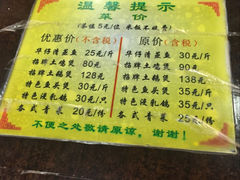 温馨提示
菜价
(茶位5元/位 米饭不收费)
优惠价(不含税) 原价(含税)
华仔清蒸鱼 25元/斤 华仔清蒸鱼 30元/斤
招牌土鸡煲 80元 招牌土鸡煲 90元
招牌土鸡煲 128元 招牌土鸡煲 138元
特色鱼头煲 30元/斤 特色鱼头煲 35元/斤
特色浸乳鸽 30元/只 特色浸乳鸽 35元/只
各式青菜 20元/份 各式青菜 25元/份
不便之处敬请原谅，谢谢!